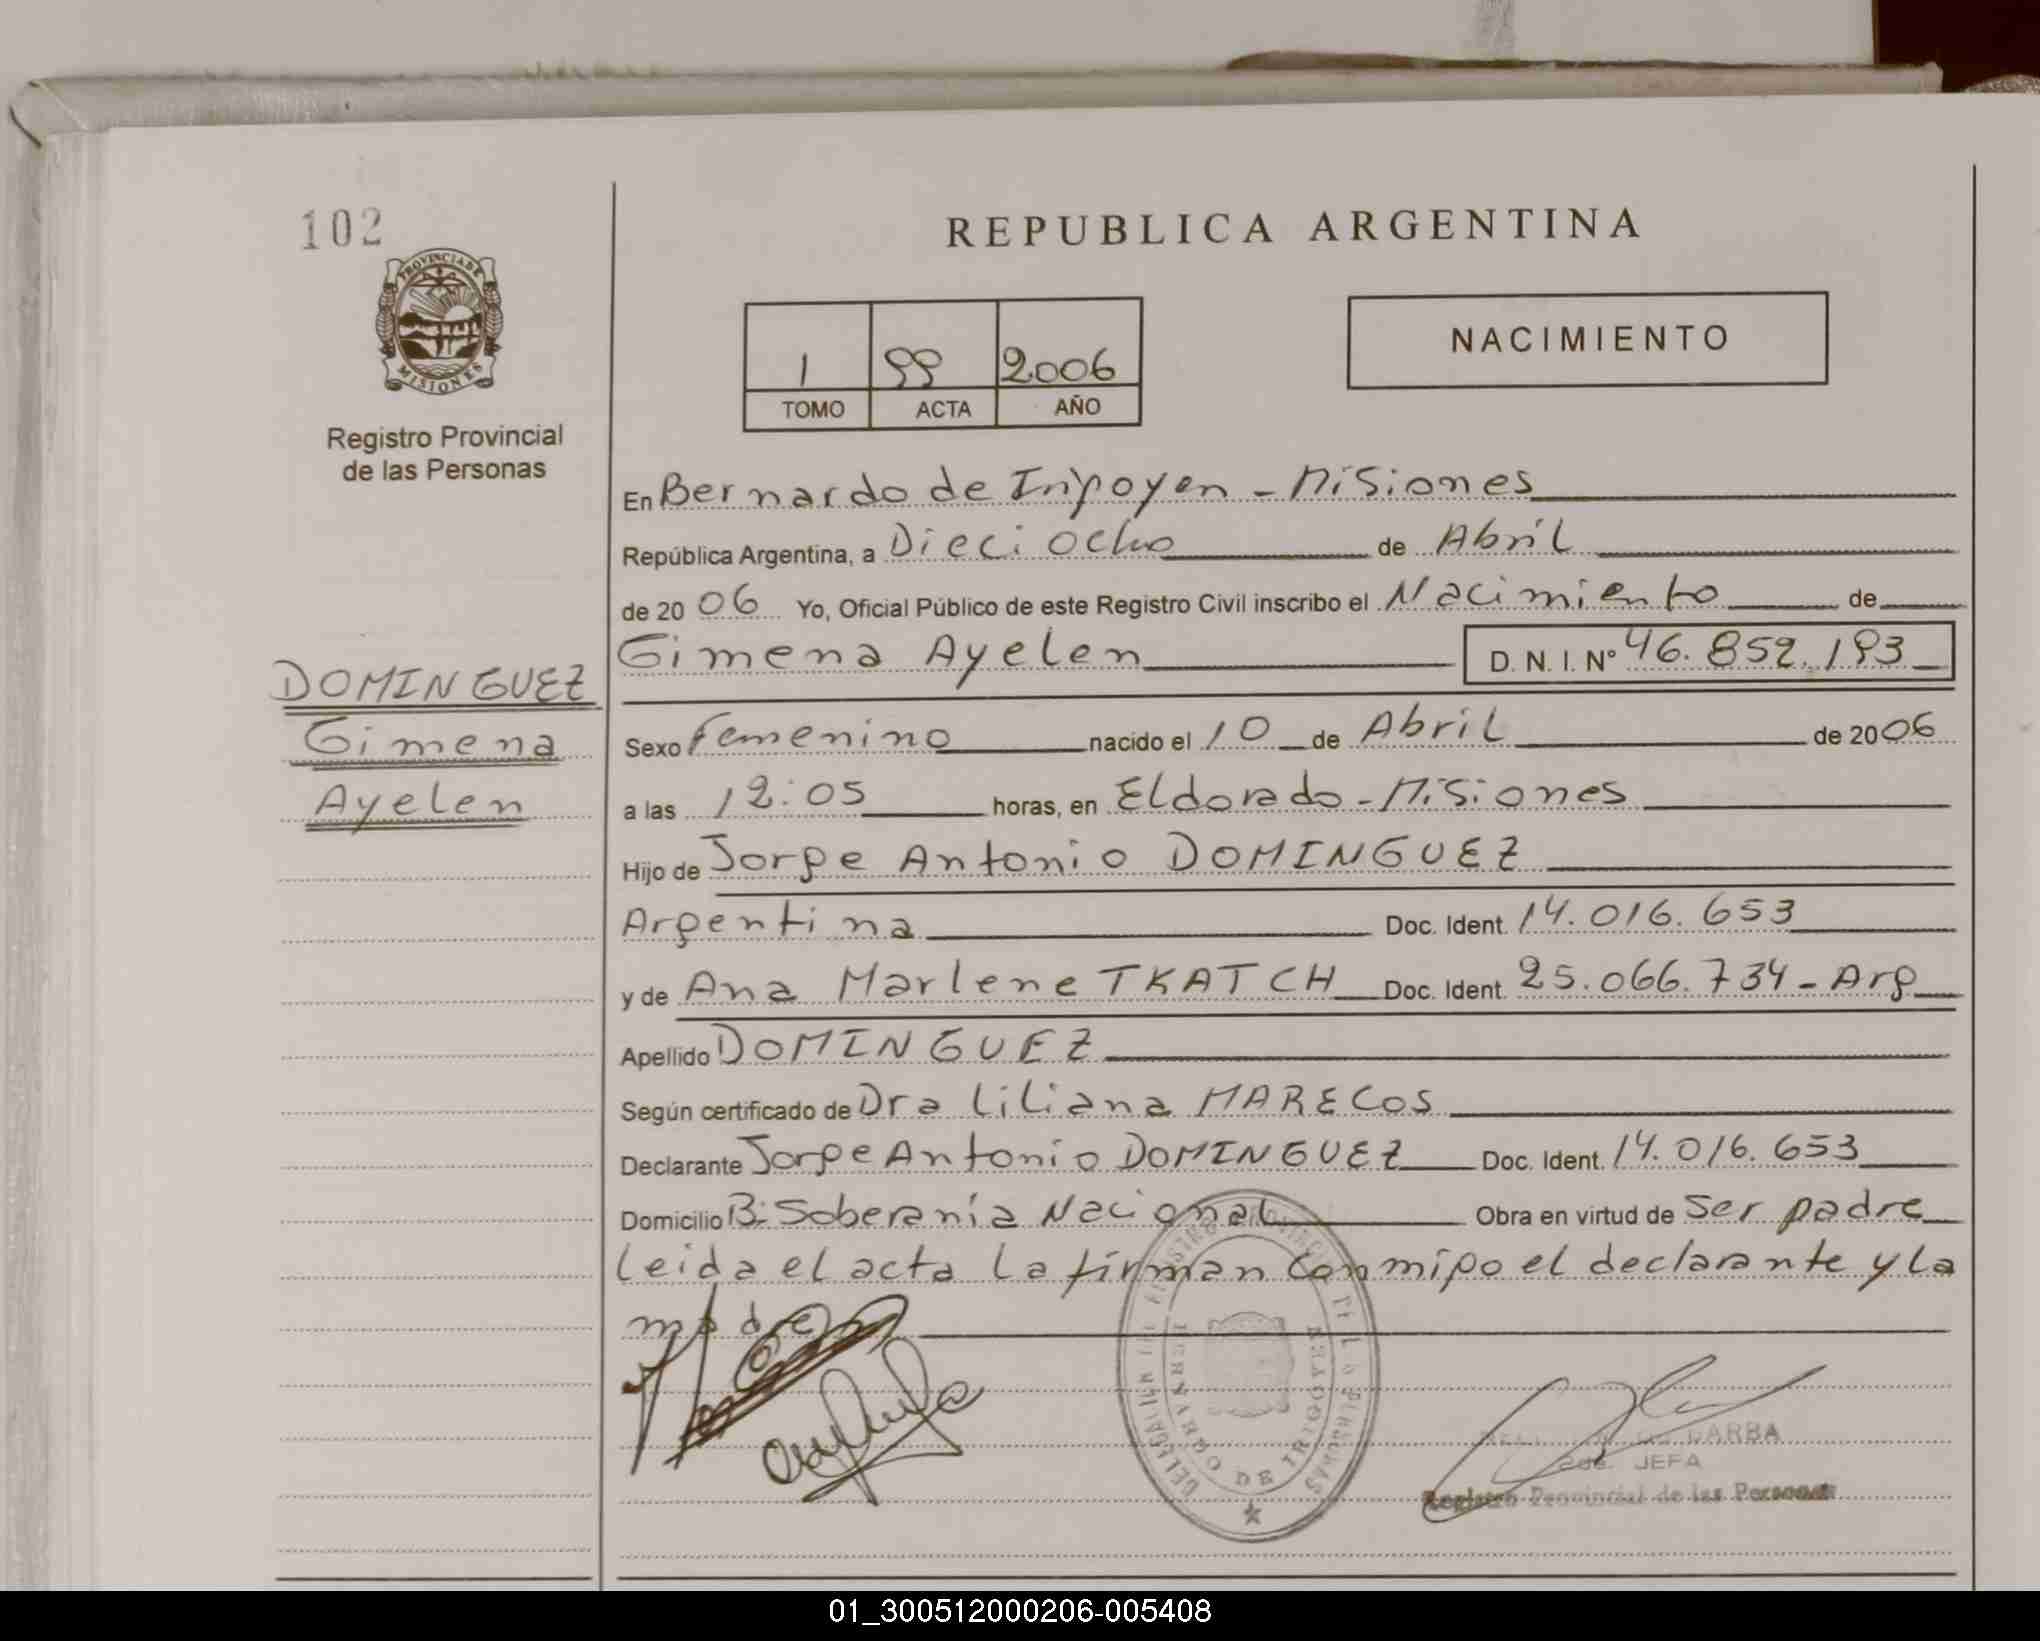 102
PROVINCIA DE
MISIONES
Registro Provincial
de las Personas
REPUBLICA ARGENTINA
1 99 2006
TOMO ACTA AÑO
NACIMIENTO
En Bernardo de Irigoyen - Misiones
República Argentina, a Dieciocho de Abril
de 2006 Yo, Oficial Público de este Registro Civil inscribo el Nacimiento de
Gimena Ayelen D. N. I. Nº 46.852.193
DOMINGUEZ
Gimena
Ayelen
Sexo Femenino nacido el 10 de Abril de 2006
a las 12:05 horas, en Eldorado - Misiones
Hijo de Jorge Antonio DOMINGUEZ
Argentina Doc. Ident. 14.016.653
y de Ana Marlene TKATCH Doc. Ident. 25.066.734 - Arg
Apellido DOMINGUEZ
Según certificado de Dra Liliana MARECOS
Declarante Jorge Antonio DOMINGUEZ Doc. Ident. 14.016.653
Domicilio B: Soberanía Nacional Obra en virtud de Ser padre
Leida el acta la firman conmigo el declarante y la
madre
BERNARDO DE IRIGOYEN
DARBA
JEFA
Registro Provincial de las Personas
01_300512000206-005408